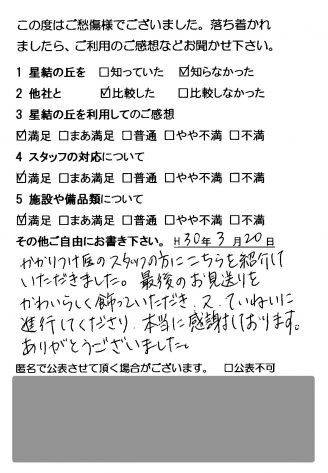 この度はご愁傷様でございました。落ち着かれ
ましたら、ご利用のご感想などお聞かせ下さい。
1 星結の丘を □知っていた ☑知らなかった
2 他社と ☑比較した □比較しなかった
3 星結の丘を利用してのご感想
☑満足 □まあ満足 □普通 □やや不満 □不満
4 スタッフの対応について
☑満足 □まあ満足 □普通 □やや不満 □不満
5 施設や備品類について
☑満足 □まあ満足 □普通 □やや不満 □不満
その他ご自由にお書き下さい。 H30年3月20日
かかりつけ医のスタッフの方にこちらを紹介け
いただきました。最後のお見送りを
かわいらしく飾っていただき、又、ていねいに
進行してくださり、本当に感謝しております。
ありがとうございました。
匿名で公表させて頂く場合がございます。 □公表不可